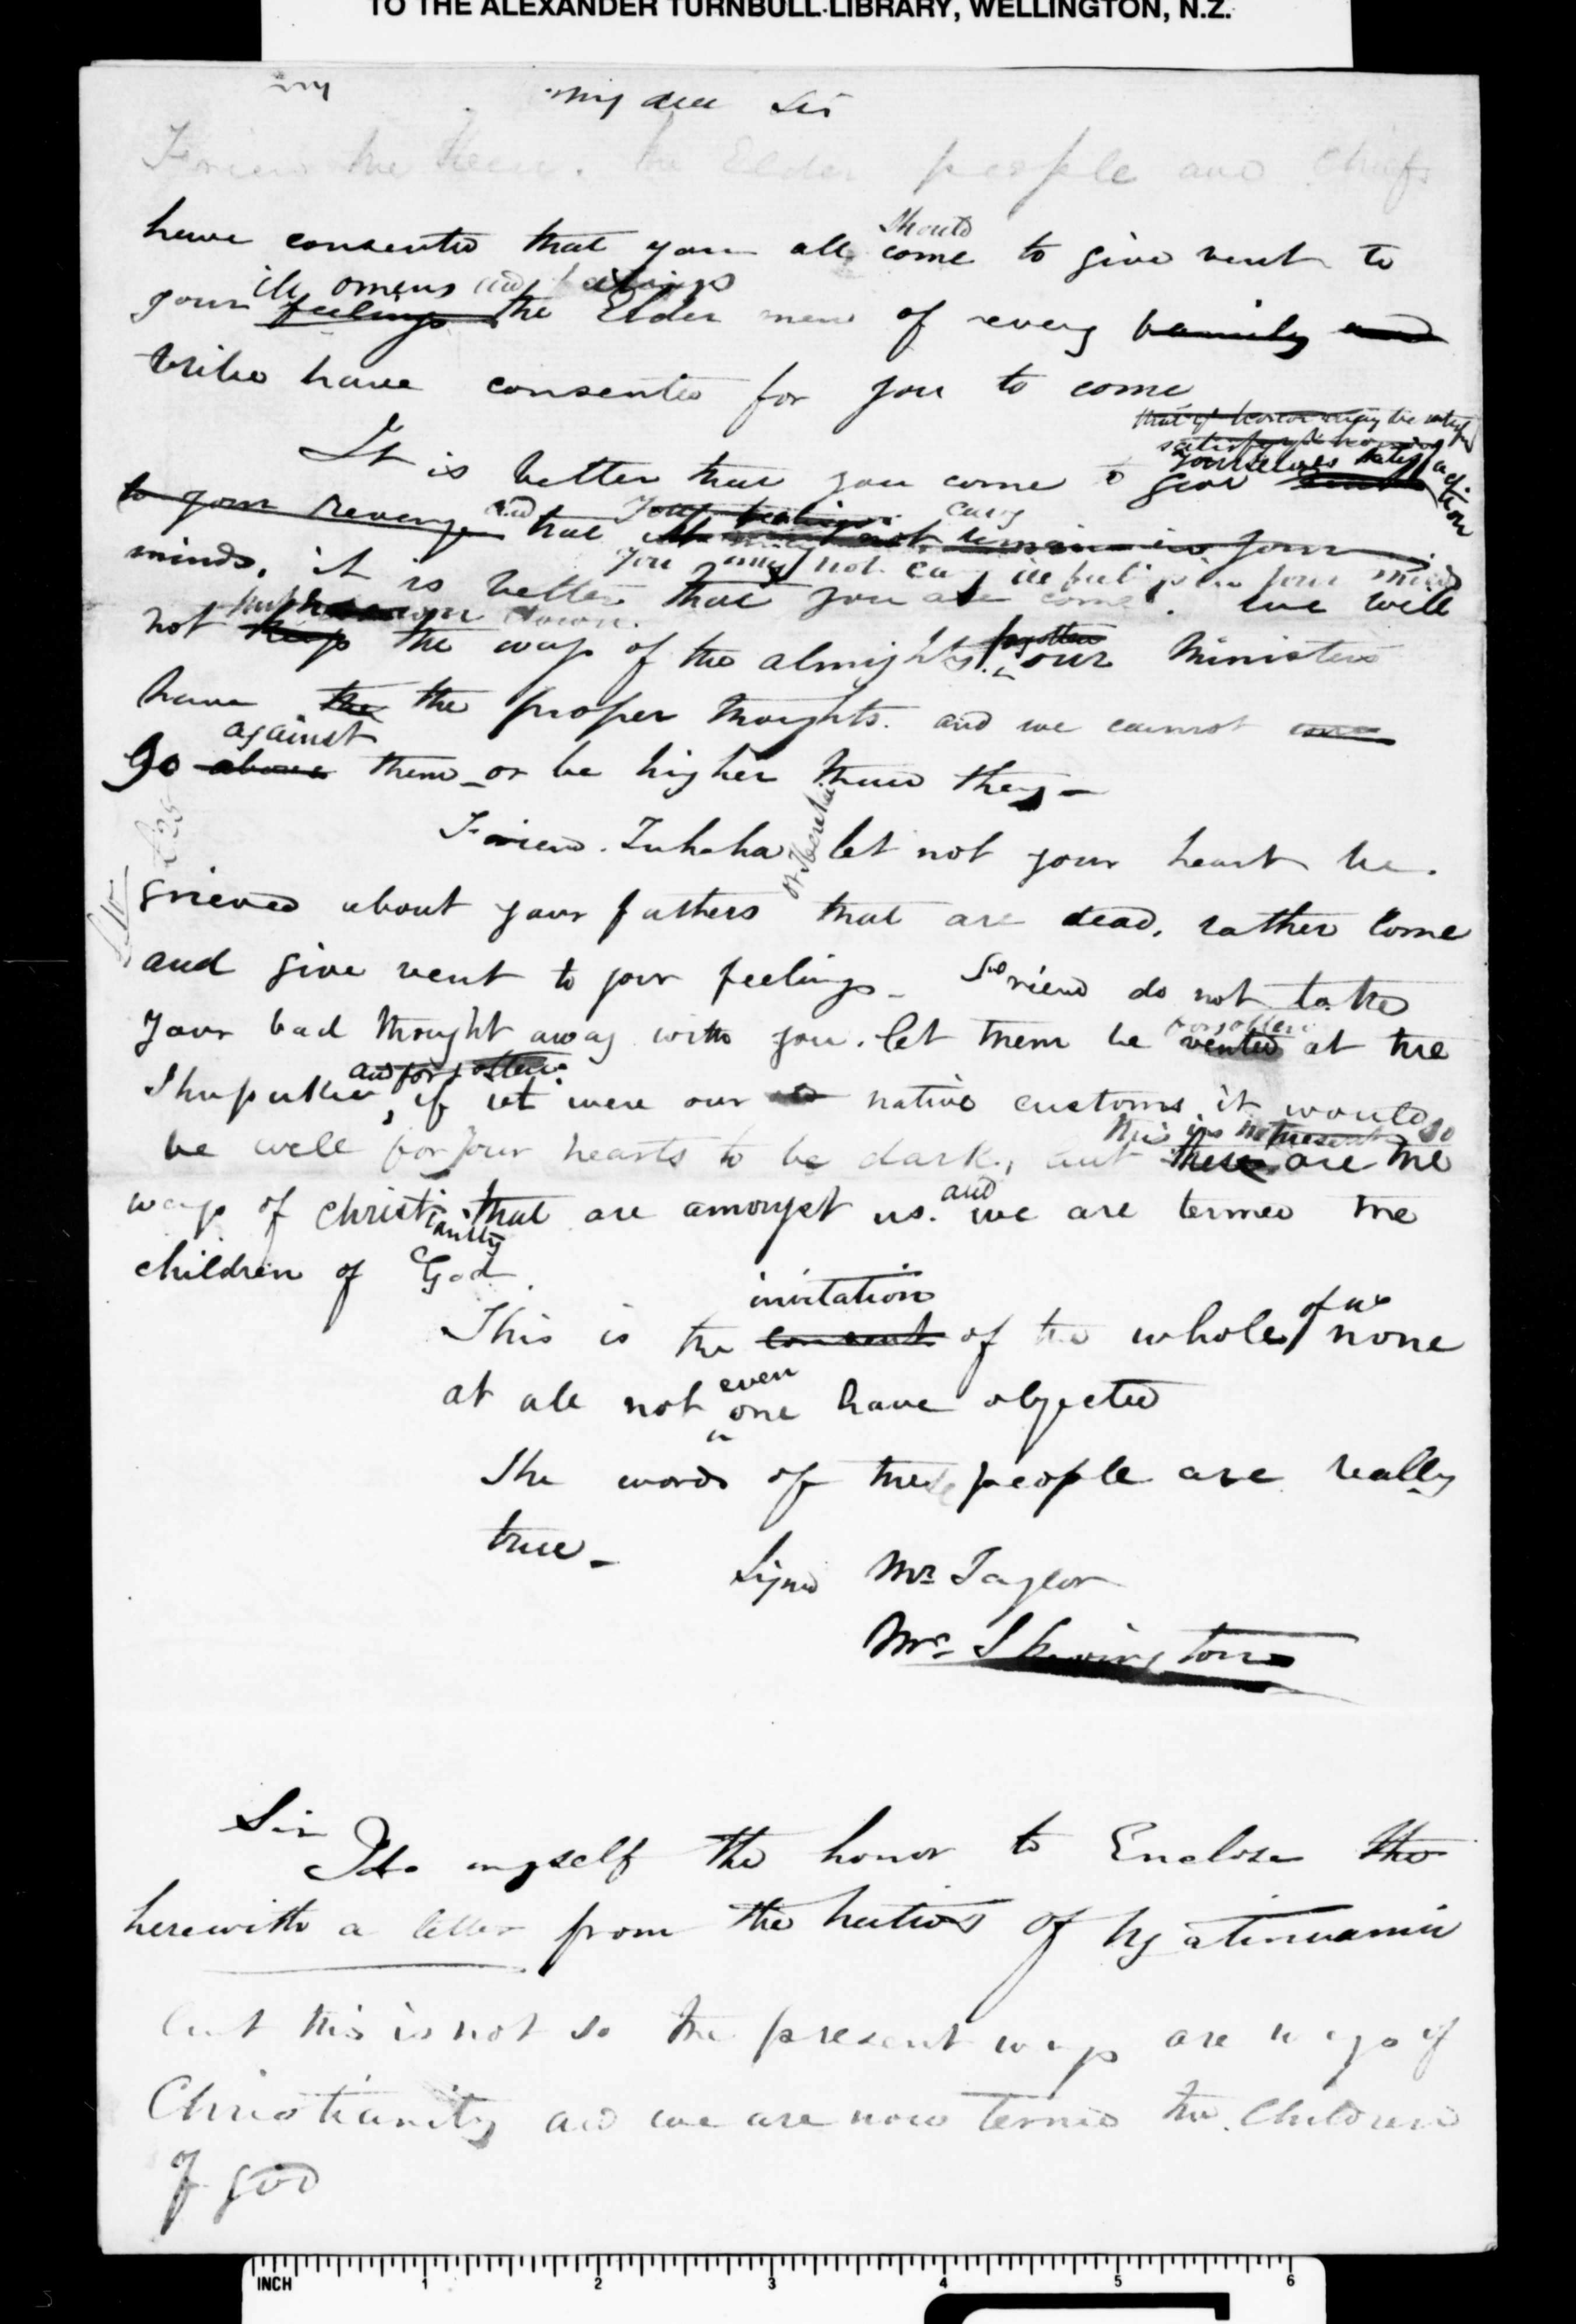 TO THE ALEXANDER TURNBULL LIBRARY, WELLINGTON, N.Z.
my My dear Sir
Friend the Elder people and Chiefs
should
have consented that you all come to give vent to
ill omens and feelings
your feelings the Elder men of every family and
tribe have consented for you to come
It is better that you come to give
yourselves satisfaction
to your revenge and that your feelings may not remain in your
you may not carry ill feelings in your minds
minds, it is better that you are come. we will
down.
not keep the ways of the almighty. forgotten our Ministers
have the the proper thoughts. and we cannot
against
go above them or be higher than they
Friend. Tuhaha let not your heart be
grieved about your fathers that are dead. rather come
and give vent to your feelings. Friend do not take
your bad thought away with you. let them be vented at the
forgotten
and forgotten
if it were our native customs it would
be well for your hearts to be dark, but these are the
this is not so
ways of christianity that are amongst us. and we are termed the
children of God
invitation
This is the consent of the whole of us none
even
at all not one have objected
The words of these people are really
true
Signed Mr Taylor
Mr Skevington
Sir
I do myself the honor to Enclose the
herewith a letter from the natives of Ngatiruanui
but this is not so the present ways are ways of
Christianity and we are now termed the Children
of god
INCH 1 2 3 4 5 6